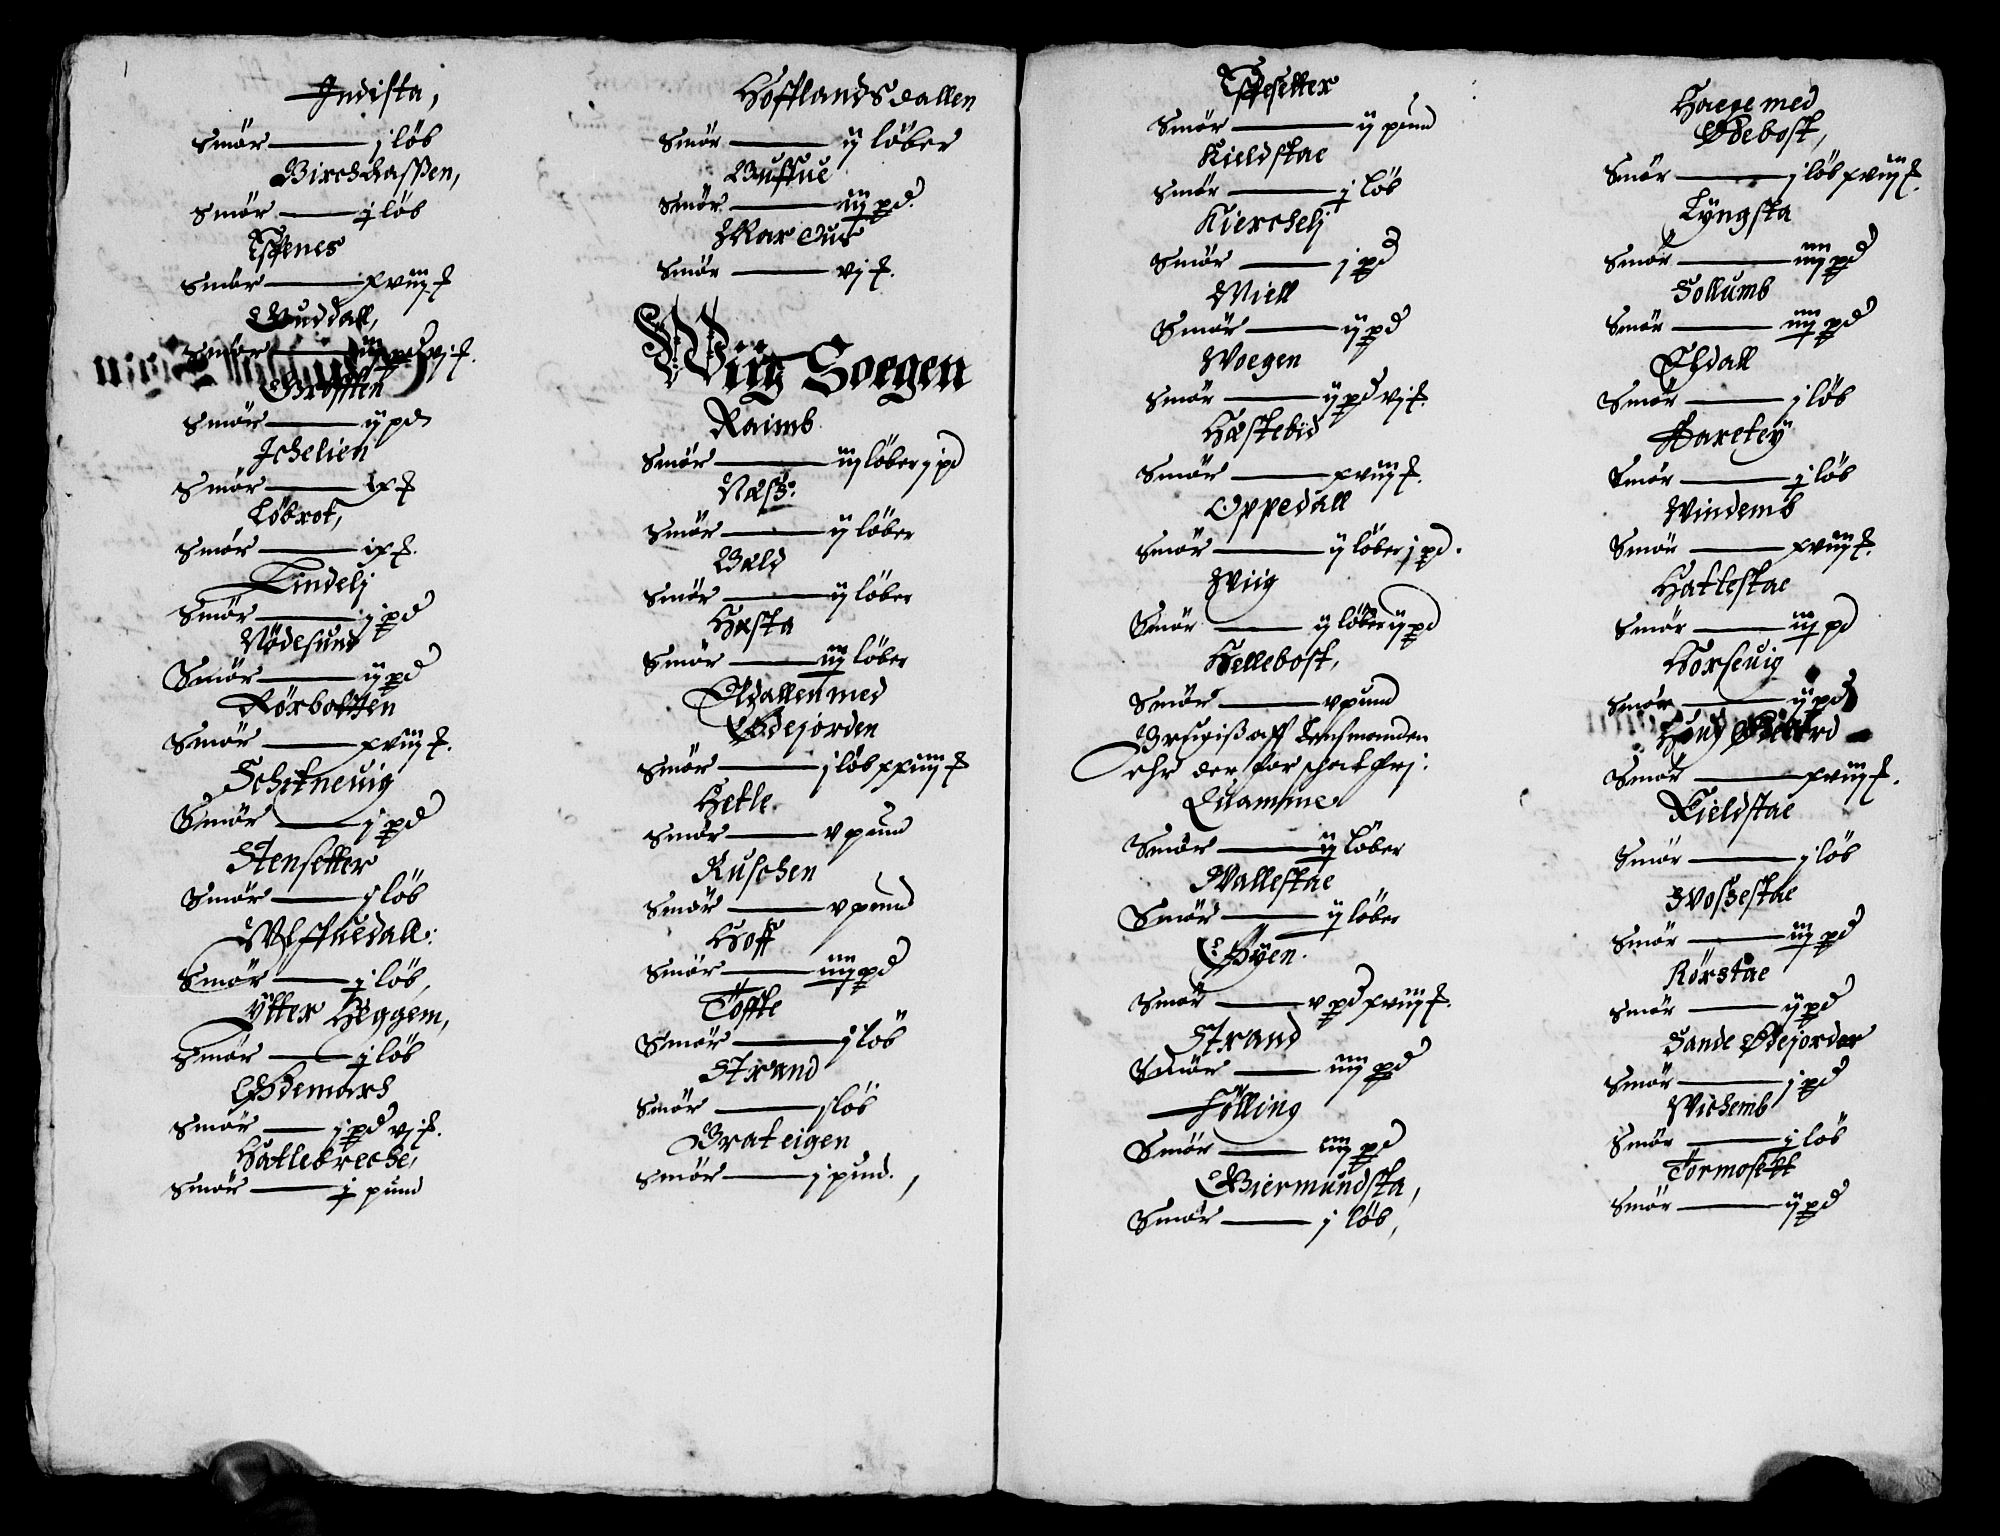 Indista,
Smör — j löb
Birchhassen,
Smör — j löb
Tssenes
Smör — xviij ʠ
Guddall,
Smör — iij pd vj ʠ.
Grofften
Smör — ij pd
Ichelien
Smör — ix ʠ
Löbrot,
Smör — ix ʠ.
Lindelj
Smör — j pd
Nödesund
Smör — ij pd
Rörbotten
Smör — xviij ʠ.
Schitneuig
Smör — j pd
Stensetter
Smör — j löb
Vlffuedall:
Smör — j löb,
Ytter Heggem,
Smör — j löb
Ödemarch
Smör — j pd vj ʠ.
Hatlebreche,
Smör — j pund
Höfflandsdallen
Smör — ij löber
Buffue
Smör — iij pd.
Mar
Smör — vj ʠ.
Wiig Soegen
Raimb
Smör — iij löber j pd
Næss:
Smör — ij löber
Bæld
Smör — ij löber
Hæsta
Smör — iij löber
Eldallen med
Ödejorden
Smör — j löb xxiiij ʠ
Hetle.
Smör — v pund
Ruschen
Smör — v pund
Hoff
Smör — iiij pd
Toffte
Smör — j löb
Strand
Smör — j löb
Brateigen
Smör — j pund.,
Smör — ij pund
Kieldstae
Smör — j löb
Kierchelj
Smör — j pd
Miell
Smör — ij pd
Woegen
Smör — ij pd vj ʠ.
Hæstebid
Smör — xviij ʠ.
Oppedall
Smör — ij löber j pd.
Wiig
Smör — ij löber ij pd
Hellebost,
Smör — v pund
Brugiss aff Lensmanden
ehr der for schatfrj:
Quamme
Smör — ij löber
Wallestae
Smör — ij löber
Öyen.
Smör — v pd xviij ʠ.
Strand
Smör — iiij pd
Fölling
Smör — iiij pd
Biermundsta,
Smör — j löb,
Haege med
Ödebost,
Smör — j löb xviij ʠ.
Lyngsta
Smör — iiij pd
Sollumb
Smör — iiij pd
Eldall
Smör — j löb
Haretey
Smör — j löb
Windemb
Smör — xviij ʠ.
Hatlestae
Smör — iij pd
Horseuig
Smör — ij pd
Smör — xviij ʠ.
Kieldstae
Smör — j löb
Wossestae
Smör — iij pd
Rörstae
Smör — ij pd
Sande Ödejorder
Smör — j pd
Wichemb
Smör — j löb
Tormosett
Smör — ij pd